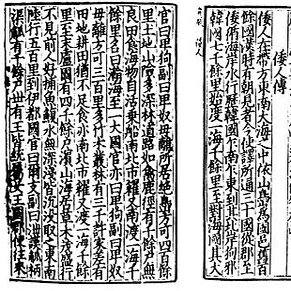 倭人傳
倭人在帶方東南大海之中依山㠀爲國邑舊百
餘國漢時有朝見者今使譯所通三十國從郡至
倭循海岸水行歷韓國乍南乍東到其北岸狗邪
韓國七千餘里始度一海千餘里至對海國其大
官曰卑狗副曰卑奴母離所居絶㠀方可四百餘
里土地山險多深林道路如禽鹿徑有千餘戶無
良田食海物自活乗船南北市糴又南渡一海千
餘里名曰瀚海至一大國官亦曰卑狗副曰卑奴
母離方可三百里多竹木叢林有三千許家差有
田地耕田猶不足食亦南北市糴又渡一海千餘
里至末盧國有四千餘戶濱山海居草木茂盛行
不見前人好捕魚鰒水無深淺皆沉沒取之東南
陸行五百里到伊都國官曰爾支副曰泄謨觚柄
渠觚有千餘戶丗有王皆統屬女王國郡使往來